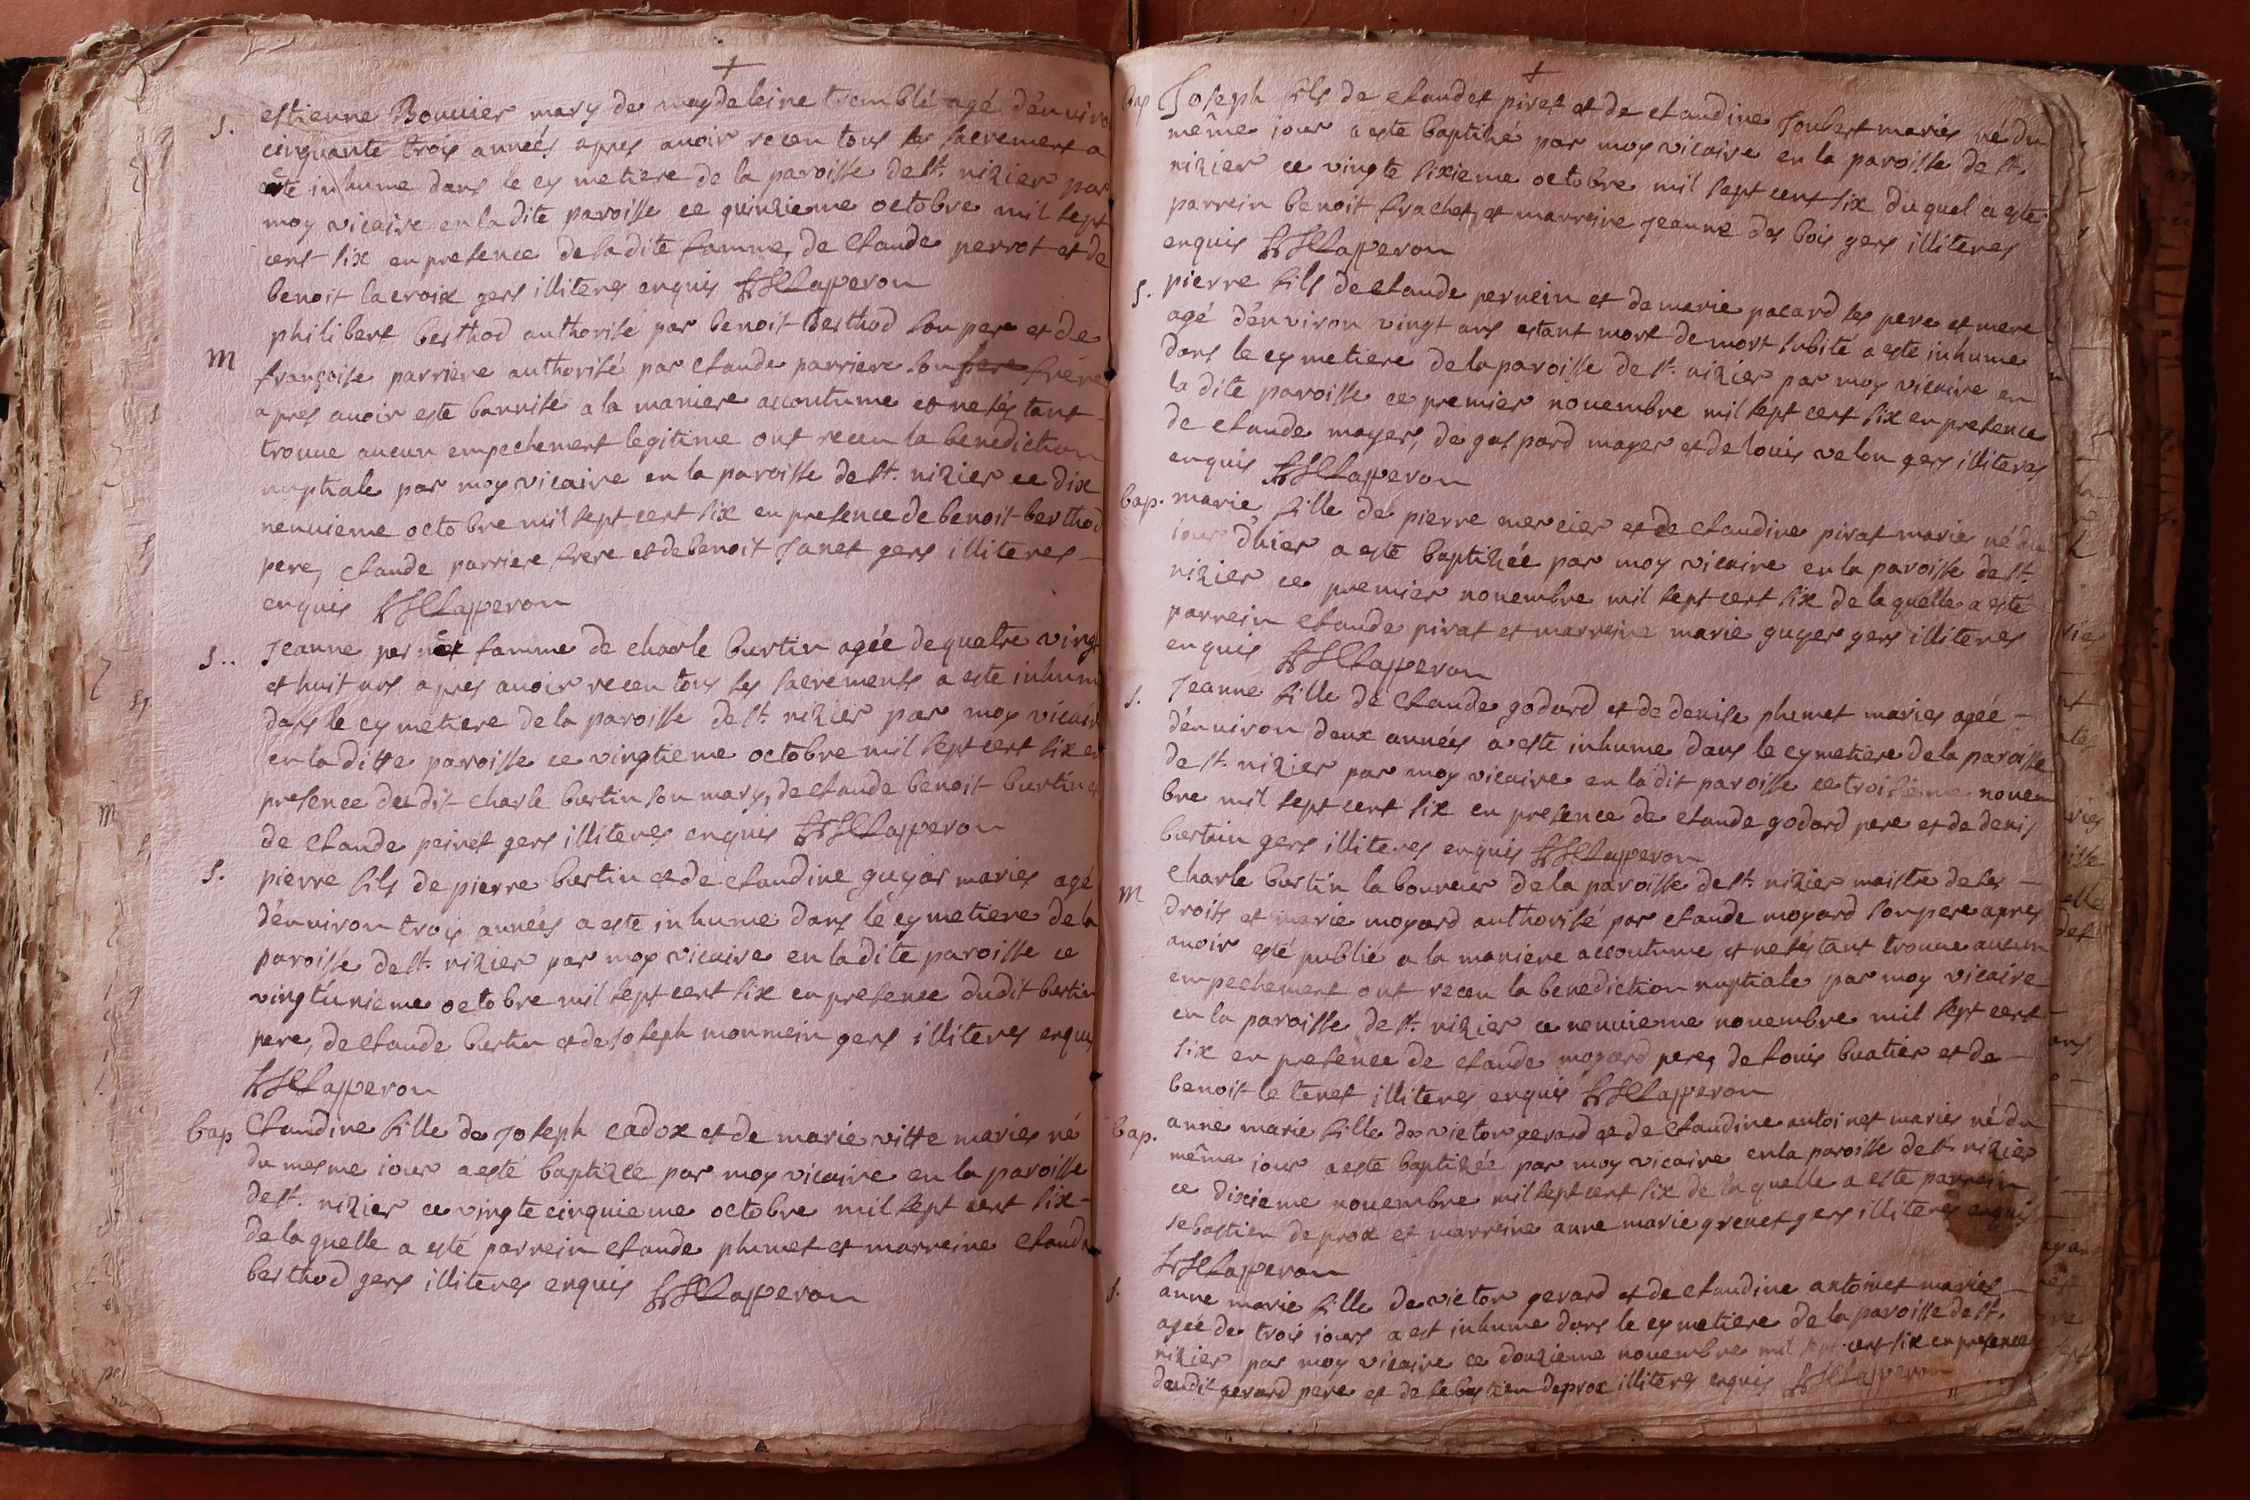 +
S.
estienne Bouvier mary de magdeleine tremblé agé d'enuiro
cinquante trois années apres auoir receu tous les sacrements a
esté inhume dans le cymetiere de la paroisse de st. nizier par
moy vicaire en la dite paroisse ce quinzieme octobre mil sept
cent six en presence de la dite famme, de claude perrot et de
benoit lacroix gens illiteres enquis Claperon
M
philibert berthod authorisé par benoit berthod son pere et de
françoise parriere authorisé par claude parriere son pere frere
apres auoir esté bannise a la maniere accoutume et ne séstant
trouue aucun empechement legitime ont receu la benediction
nuptiale par moy vicaire en la paroisse de st. nizier ce dix
neuuieme octobre mil sept cent six en presence de benoit berthod
pere, claude parriere frere et de benoit Janet gens illiteres
enquis Claperon
S..
Jeanne pernet famme de charle burtin agée de quatre ving
et huit ans apres auoir receu tous ses sacrements a esté inhum
dans le cymetiere de la paroisse de st. nizier par moy vicair
en la ditte paroisse ce vingtieme octobre mil sept cent six en
presence dudit charle burtin son mary, de claude benoit burtin et
de claude peiret gens illiteres enquis Claperon
S.
pierre fils de pierre burtin et de claudine guyar mariés agé
d'enuiron trois années a esté inhume dans le cymetiere de la
paroisse de st. nizier par moy vicaire en la dite paroisse ce
vingtunieme octobre mil sept cent six en presence dudit burtin
pere, de claude burtin et de Joseph monmein gens illiteres enquis
Claperon
bap
Claudine fille de Joseph cadox et de marie vitte mariés né
du mesme iour a esté baptizée par moy vicaire en la paroisse
de st. nizier ce vingtecinquieme octobre mil sept cent six
de la quelle a esté parrein claude plumet et marreine claudi
berthod gens illiteres enquis Claperon
+
bap
Joseph fils de claudet pirat et de claudine Joubert mariés né du
même iour a esté baptizé par moy vicaire en la paroisse de st.
nizier ce vingte sixieme octobre mil sept cent six duquel a esté
parrein benoit frachet, et marreine Jeanne des bois gens illiteres
enquis Claperon
S.
pierre fils de claude pernein et de marie pacard ses pere et mere
agé d'enuiron vingt ans estant mort de mort subite a esté inhume
dans le cymetiere de la paroisse de st. nizier par moy vicaire en
la dite paroisse ce premier nouembre mil sept cent six en presence
de claude mayer, de gaspard mayer et de louis velon gens illiteres
enquis Claperon
bap.
marie fille de pierre mercier et de claudine pirat mariés né du
iour d'hier a esté baptizée par moy vicaire en la paroisse de st.
nizier ce premier nouembre mil sept cent six de la quelle a esté
parrein claude pirat et marreine marie guyer gens illiteres
enquis Claperon
S.
Jeanne fille de claude godard et de denise plumet mariés agee
d'enuiron deux années a esté inhume dans le cymetiere de la paroisse
de st. nizier par moy vicaire en la dit paroisse ce troisieme nouem
bre mil sept cent six en presence de claude godard pere et de denis
burtin gens illiteres enquis Claperon
M
charle burtin laboureur de la paroisse de st. nizier maistre de ses
droits et marie moyard authorisé par claude moyard son pere apres
auoir esté publié a la maniere accoutume et ne séstant trouue aucun
empechement ont receu la benediction nuptiale par moy vicaire
en la paroisse de st. nizier ce neuuieme nouembre mil sept cent
six en presence de claude moyard pere, de louis buatier et de
benoit le tenet illiteres enquis Claperon
bap.
anne marie fille de victor gerard et de claudine antoinet mariés né du
même iour a esté baptizée par moy vicaire en la paroisse de st. nizier
ce dixieme nouembre mil sept cent six de la quelle a esté parrein
sebastien deprox et marreine anne marie grenet gens illiteres enquis
Claperon
S.
anne marie fille de victor gerard et de claudine antoinet mariés
agee de trois iours a est inhume dans le cymetiere de la paroisse de st.
nizier par moy vicaire ce douzieme nouembre mil sept cent six en presence
dudit gerard pere et de sebastien deprox illiteres enquis Claperon